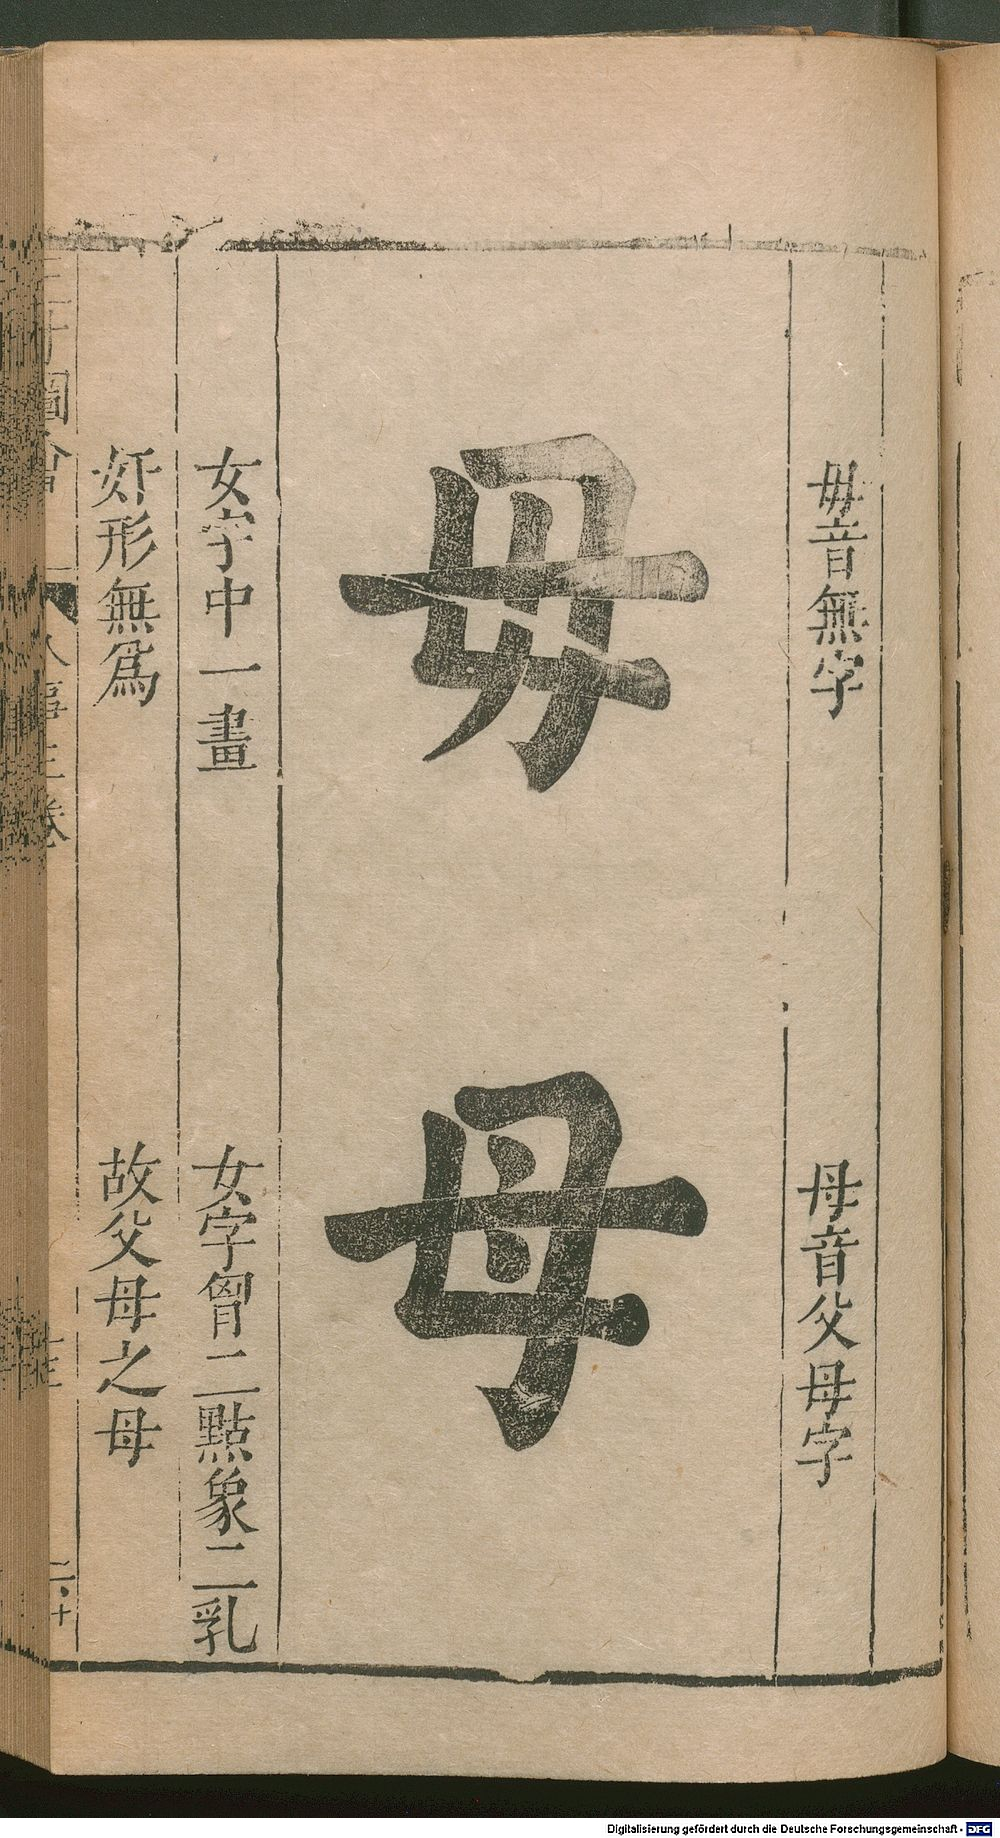 毋音無字
母音父母字
毋
母
女字中一畫
女字胷二點象二乳
奸形無爲
故父母之母
圖會
人事三卷
二十
Digitalisierung gefördert durch die Deutsche Forschungsgemeinschaft - DFG